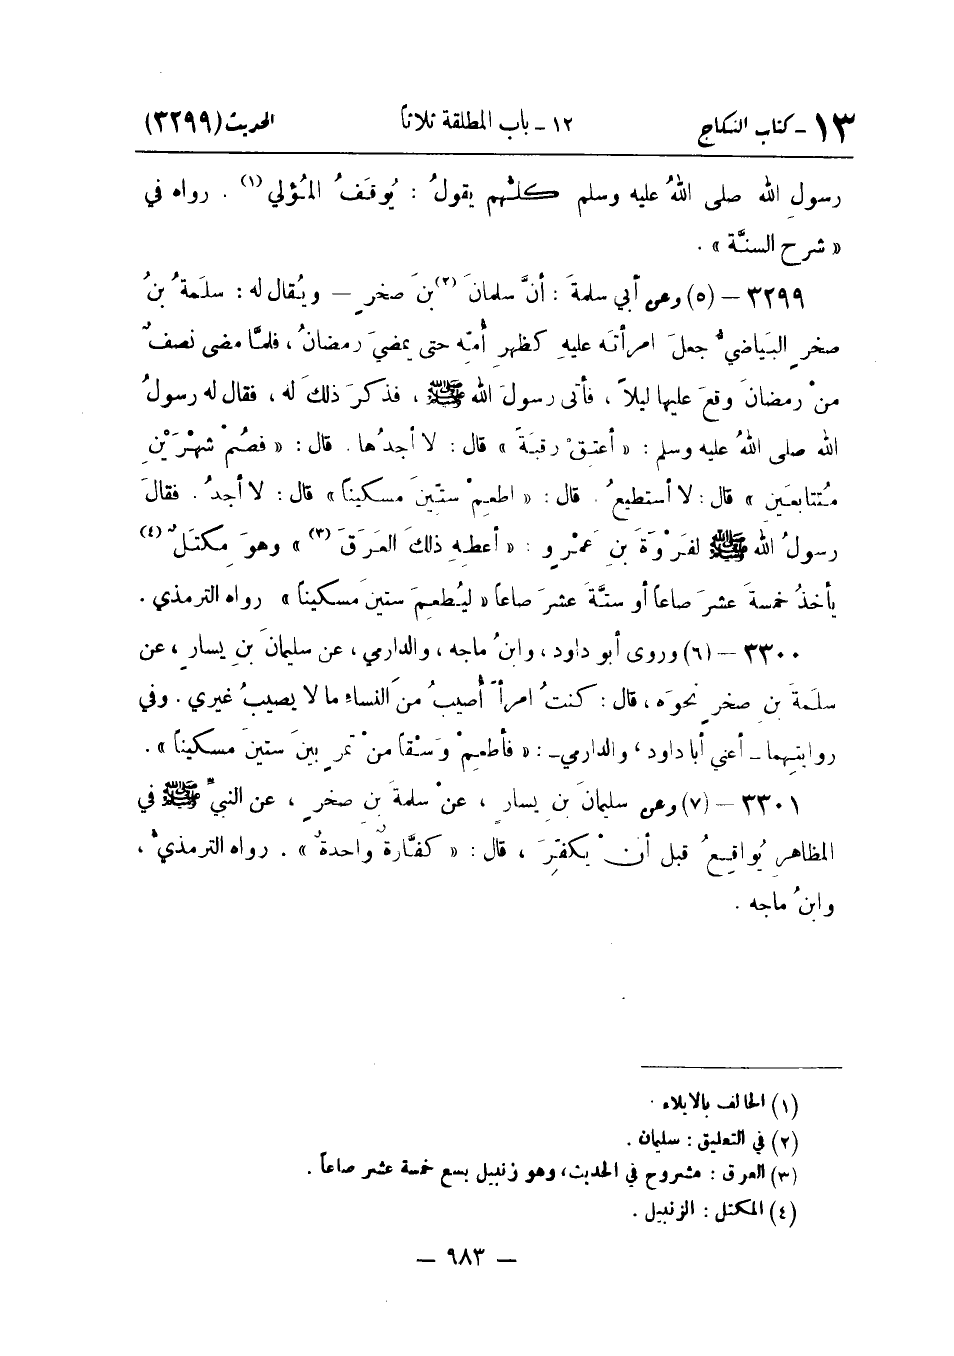 ١٣ - كتاب النكاح ١٢ - باب المطلقة ثلاثاً الحديث (٣٢٩٩)
رسولِ الله صلى اللهُ عليه وسلم كلُّهم يقولُ : يُوقَفُ المُؤْلي (١) . رواه في
« شرح السنَّة » .
٣٢٩٩ – (٥) وعن أبي سلمةَ : أنَّ سلمانَ (٢) بنَ صخرٍ – ويُقال له : سلَمةُ بنُ
صخرٍ البَياضيُّ جعلَ امرأتَه عليهِ كظهرِ أُمِّه حتى يمضيَ رمضانُ ، فلمَّا مضى نصفٌ
منْ رمضانَ وقعَ عليها ليلاً ، فأتى رسولَ الله ﷺ ، فذكرَ ذلكَ له ، فقال له رسولُ
الله صلى اللهُ عليه وسلم : « أعتِقْ رقبَةً » قال : لا أجدُها . قال : « فصُمْ شهْرَيْنِ
مُتتابعَين » قال : لا أستطيعُ . قال : « اطعِمْ ستِّينَ مسكيناً » قال : لا أجدُ . فقالَ
رسولُ الله ﷺ لفَرْوَةَ بنِ عَمْرٍو : « أعطِهِ ذلكَ العَرَقَ (٣) » وهوَ مِكتَلٌ (٤)
يأخذُ خمسةَ عشرَ صاعاً أو ستَّةَ عشرَ صاعاً « ليُطعِمَ ستينَ مسكيناً » رواه الترمذي .
٣٣٠٠ – (٦) وروى أبو داود ، وابنُ ماجه ، والدارمي ، عن سليمانَ بنِ يسارٍ ، عن
سلَمةَ بنِ صخرٍ نحوَه ، قال : كنتُ امرأً أُصيبُ منَ النساءِ ما لا يصيبُ غيري . وفي
روايتِهما - أعني أبا داود ، والدارمي - : « فأطعِمْ وَسْقاً منْ تمرٍ بينَ ستينَ مسكيناً » .
٣٣٠١ – (٧) وعن سليمانَ بنِ يسارٍ ، عنْ سلمةَ بنِ صخرٍ ، عن النبيِّ ﷺ في
المظاهرِ يُواقِعُ قبل أنْ يكفِّرَ ، قال : « كفَّارةٌ واحدةٌ » . رواه الترمذيُّ ،
وابنُ ماجه .
(١) الحالف بالايلاء .
(٢) في التعليق : سليمان .
(٣) العرق : مشروح في الحديث ، وهو زنبيل يسع خمسة عشر صاعاً .
(٤) المكتل : الزنبيل .
– ٩٨٣ –